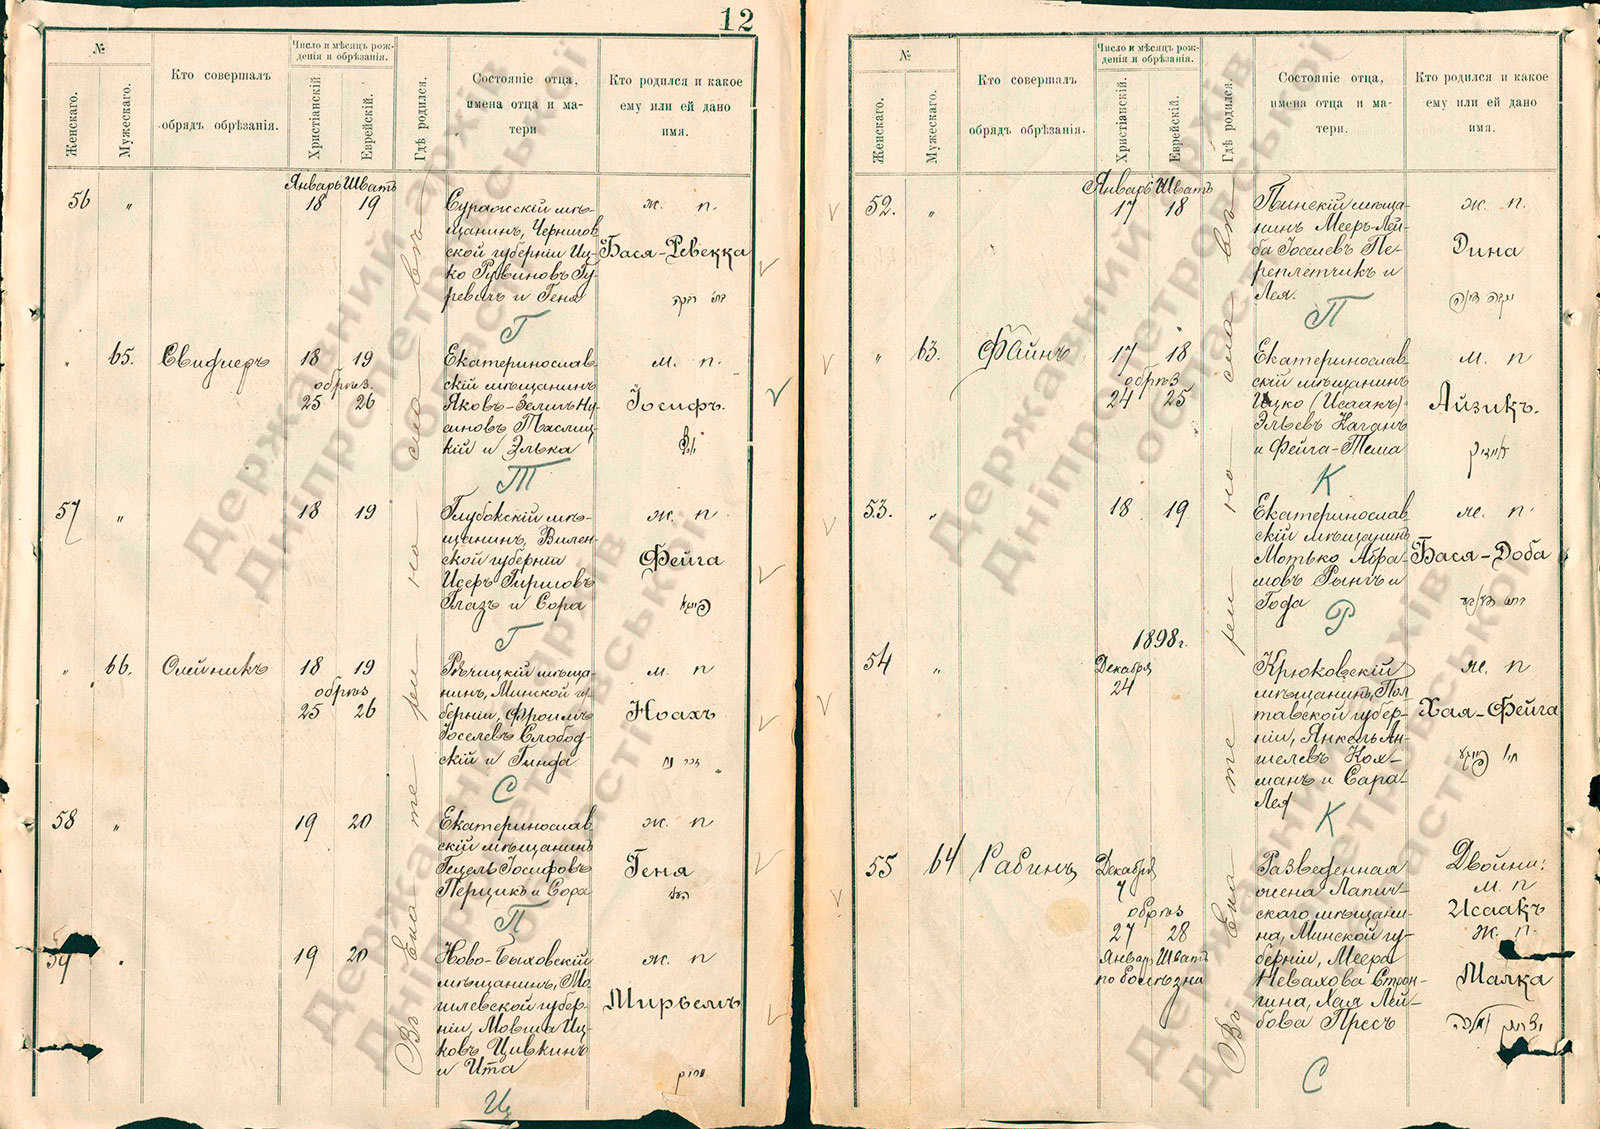 12
№
Женскаго.
Мужескаго.
Кто совершалъ
обрядъ обрѣзанія.
Число и мѣсяцъ рож-
денія и обрѣзанія.
Христіанскій
Еврейскій.
Гдѣ родился.
Состояніе отца,
имена отца и ма-
тери
Кто родился и какое
ему или ей дано
имя.
Въ Екатеринославѣ
56
"
Январь Шватъ
18 19
Суражскій мѣ-
щанинъ, Чернигов
ской губерніи Иц-
ко Рувиновъ Гу-
ревичъ и Геня
Г
ж. п.
Бася-Ревекка
"
65.
Свифлеръ
18 19
обрѣз
25 26
Екатеринослав
скій мѣщанинъ
Яковъ-Зелигъ Ну-
синовъ Таслиц-
кій и Элька
Т
м. п.
Іосифъ.
57
"
18 19
Глубокскій мѣ-
щанинъ, Вилен
ской губерніи
Исеръ Гиршовъ
Глазъ и Сора
Г
ж. п
Фейга
פייגא
"
66.
Олейникъ
18 19
обрѣз
25 26
Рѣчицкій мѣща
нинъ, Минской гу
берніи, Фроимъ
Іоселевъ Слобод-
скій и Гинда
С
м. п
Ноахъ
58
"
19 20
Екатеринослав
скій мѣщанинъ
Гецель Іосифовъ
Перцикъ и Сора
П
ж. п
Геня
59
19 20
Ново-Быховскій
мѣщанинъ, Мо
гилевской губер-
ніи, Мовша Иц-
ковъ Цивкинъ
и Ита
Ц
ж. п
Мирьемъ
№
Женскаго.
Мужескаго.
Кто совершалъ
обрядъ обрѣзанія.
Число и мѣсяцъ рож-
денія и обрѣзанія.
Христіанскій
Еврейскій.
Гдѣ родился.
Состояніе отца,
имена отца и ма-
тери.
Кто родился и какое
ему или ей дано
имя.
Въ Екатеринославѣ
52.
"
Январь Шватъ
17 18
Пинскій мѣща-
нинъ Мееръ-Лей-
ба Іоселевъ Пе-
реплетчикъ и
Лея.
П
ж. п.
Дина
"
63.
Файнъ
17 18
обрѣз
24 25
Екатеринослав-
скій мѣщанинъ
Ицко (Исаакъ)
Эльевъ Каганъ
и Фейга-Тема
К
м. п
Айзикъ.
אייזיק
53.
"
18 19
Екатеринослав-
скій мѣщанинъ
Мотько Абра-
мовъ Рынгъ и
Года
Р
ж. п.
Бася-Доба
54
"
1898г.
Декабря
24
Крюковскій
мѣщанинъ, Пол
тавской губер-
ніи, Янкель Ан-
шелевъ Кох-
манъ и Сара-
Лея
К
ж. п
Хая-Фейга
55
64
Рабинъ
Декабря
7
обрѣз
27 28
Январ Шватъ
по болѣзни
Разведенная
жена Лапич-
скаго мѣщани-
на, Минской гу-
берніи, Меера
Невахова Строн-
гина, Хая Лей-
бова Пресъ
С
Двойни:
м. п
Исаакъ
ж. п.
Малка
Державний архів
Дніпропетровської
області
Державний архів
Дніпропетровської
області
Державний архів
Дніпропетровської
області
Державний архів
Дніпропетровської
області